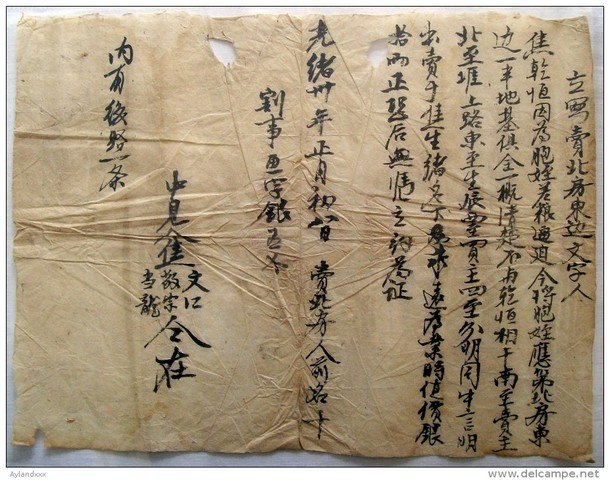 立寫賣北房東边文字人
焦乾恒因為胞姪荒粮逼迫今將胞姪應分北房東
边一半地基俱全一概清楚不与乾恒相干南至賣主
北至堆上路東至生辰西至買主四至分明同中言明
出賣于焦生緒名下永遠為業時值價銀
拾兩正恐后無憑立約為证
光緒卅年正月初八日 賣北房人前名十
割事画字銀五分
中見焦文口
敬宗
当龍
仝在
內有後路一条
Aylandxxx
www.delcampe.net